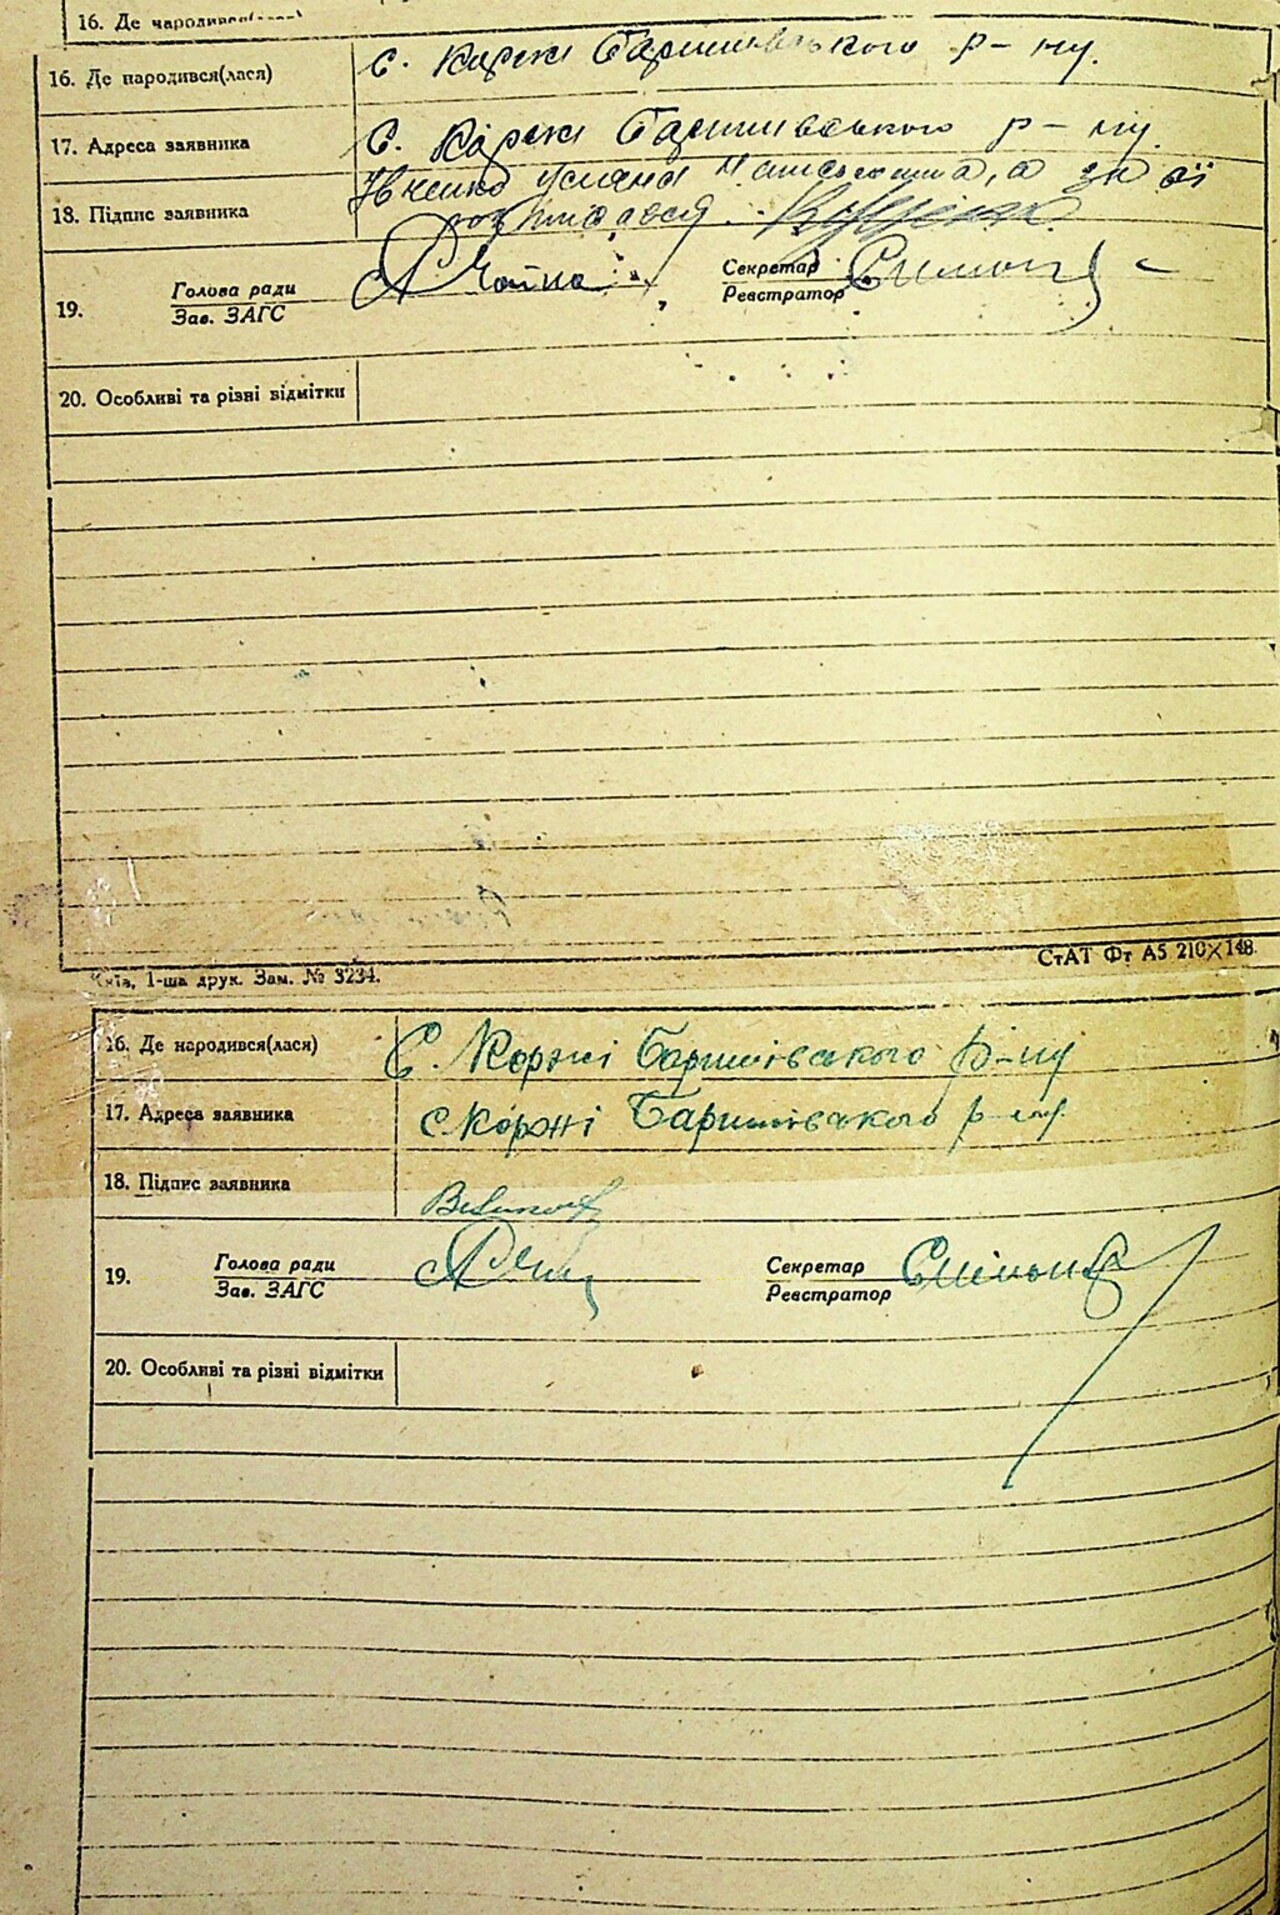 16. Де народився(лася)
16. Де народився(лася) С. Коржі Баришівського р-ну.
17. Адреса заявника С. Коржі Баришівського р-ну.
Явченко Уляна а за її
18. Підпис заявника
Голова ради Чайка Секретар
19. Зав. ЗАГС Реєстратор
20. Особливі та різні відмітки
СтАТ Фт А5 210×148.
Київ, 1-ша друк. Зам. № 3234.
16. Де народився(лася) С. Коржі Баришівського р-ну
17. Адреса заявника С Коржі Баришівського р-ну.
18. Підпис заявника
Голова ради Секретар
19. Зав. ЗАГС Реєстратор
20. Особливі та різні відмітки